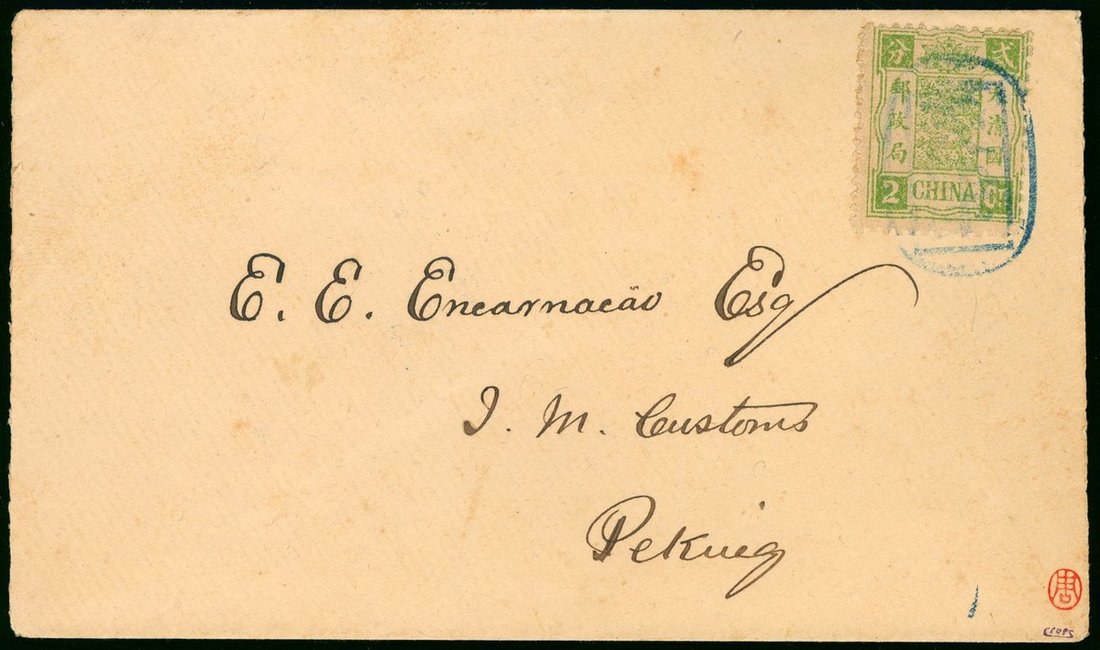 分 弍
郵政局 大清國
2 CHINA
E. E. Encarnacão Esq
I. M. Customs
Peking